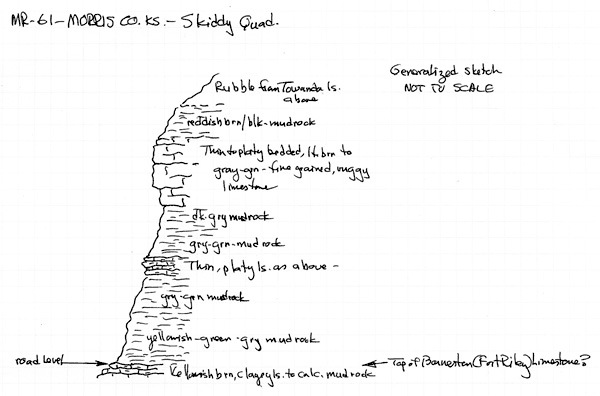 MR-61-MORRIS CO. KS. - Skiddy Quad.
Generalized sketch
NOT TO SCALE
Rubble from Towanda ls.
above
reddish brn/blk-mudrock
Thin to platy bedded, lt. brn to
gray-grn-fine grained, vuggy
limestone
dk-gry mudrock
gry-grn-mudrock
Thin, platy ls. as above -
gry-grn mudrock
yellowish-green-gry mudrock
road level
Yellowish brn, clayey ls. to calc. mudrock
Top of Barneston (Fort Riley) Limestone?